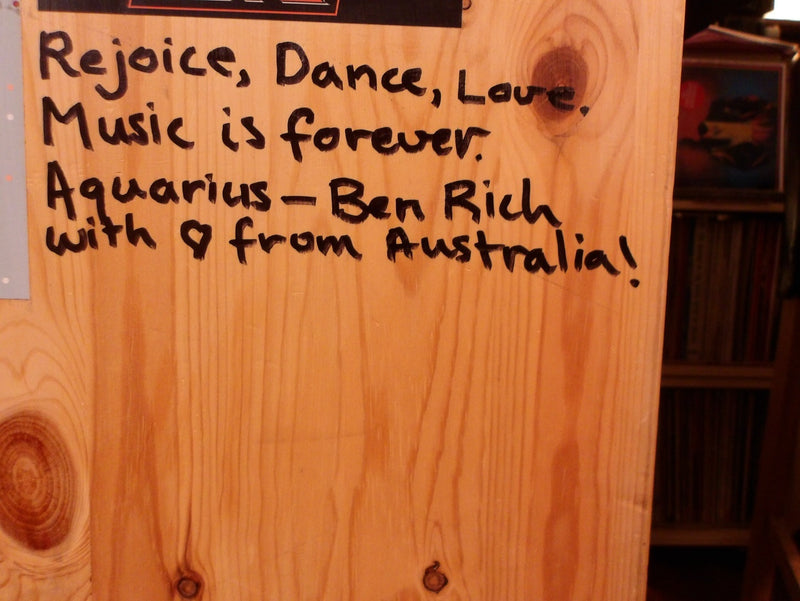 Rejoice, Dance, Love.
Music is forever.
Aquarius — Ben Rich
with ♡ from Australia!